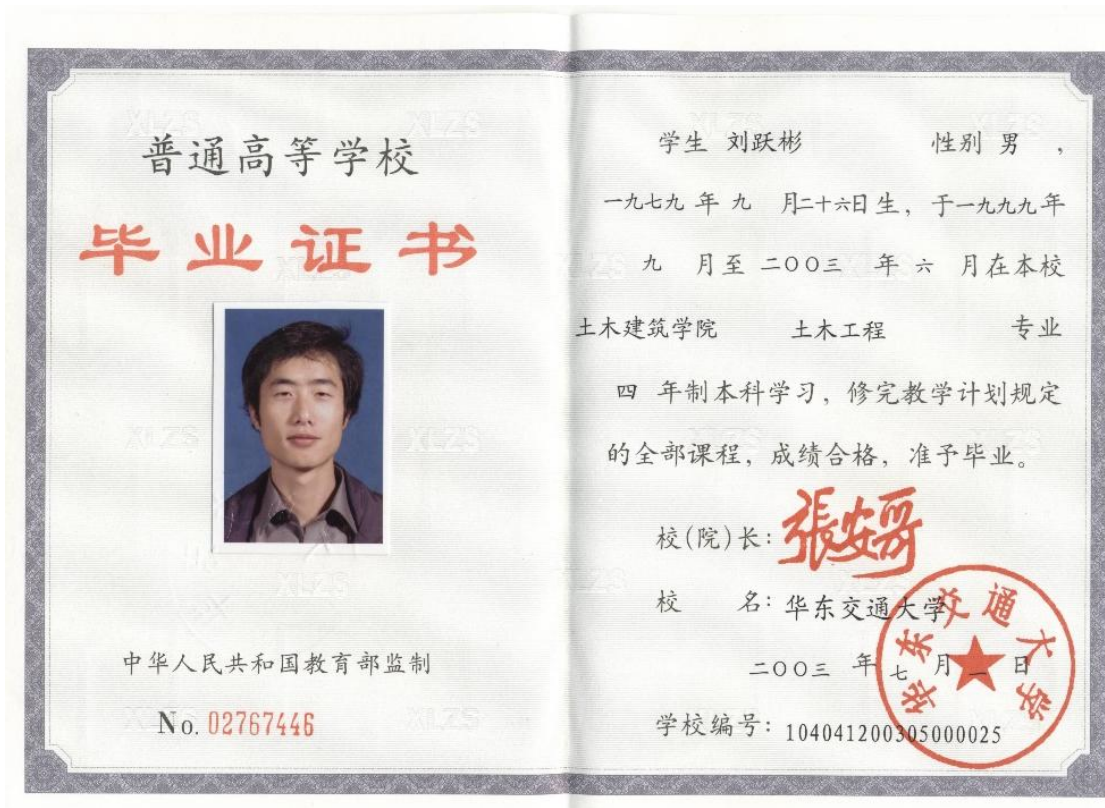 普通高等学校
毕业证书
中华人民共和国教育部监制
No. 02767446
学生 刘跃彬 性别 男 ，
一九七九 年 九 月二十六日生，于一九九九年
九 月至 二〇〇三 年 六 月在本校
土木建筑学院 土木工程 专业
四 年制本科学习，修完教学计划规定
的全部课程，成绩合格，准予毕业。
校(院)长：張安哥
校 名：华东交通大学
二〇〇三 年 七 月 一 日
学校编号：104041200305000025
华东交通大学
XLZS